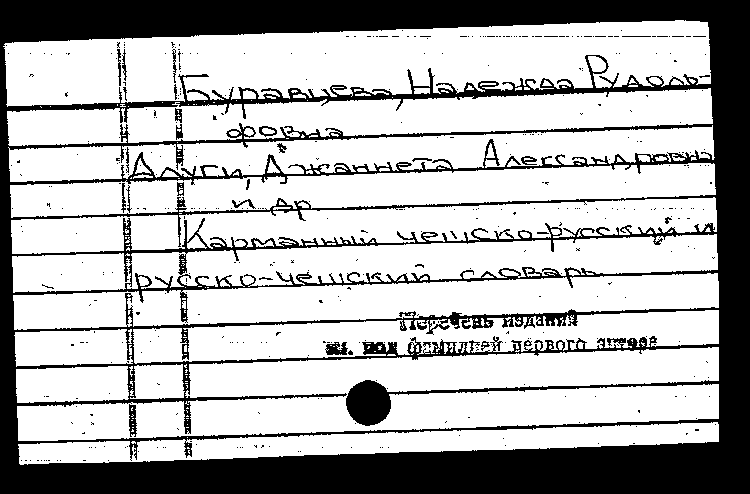 Буравцева, Надежда Рудоль-
фовна
Алуги, Джаннета Александровна
и др
Карманный чешско-русский и
русско-чешский словарь
Перечень изданий
см. под фамилией первого автора